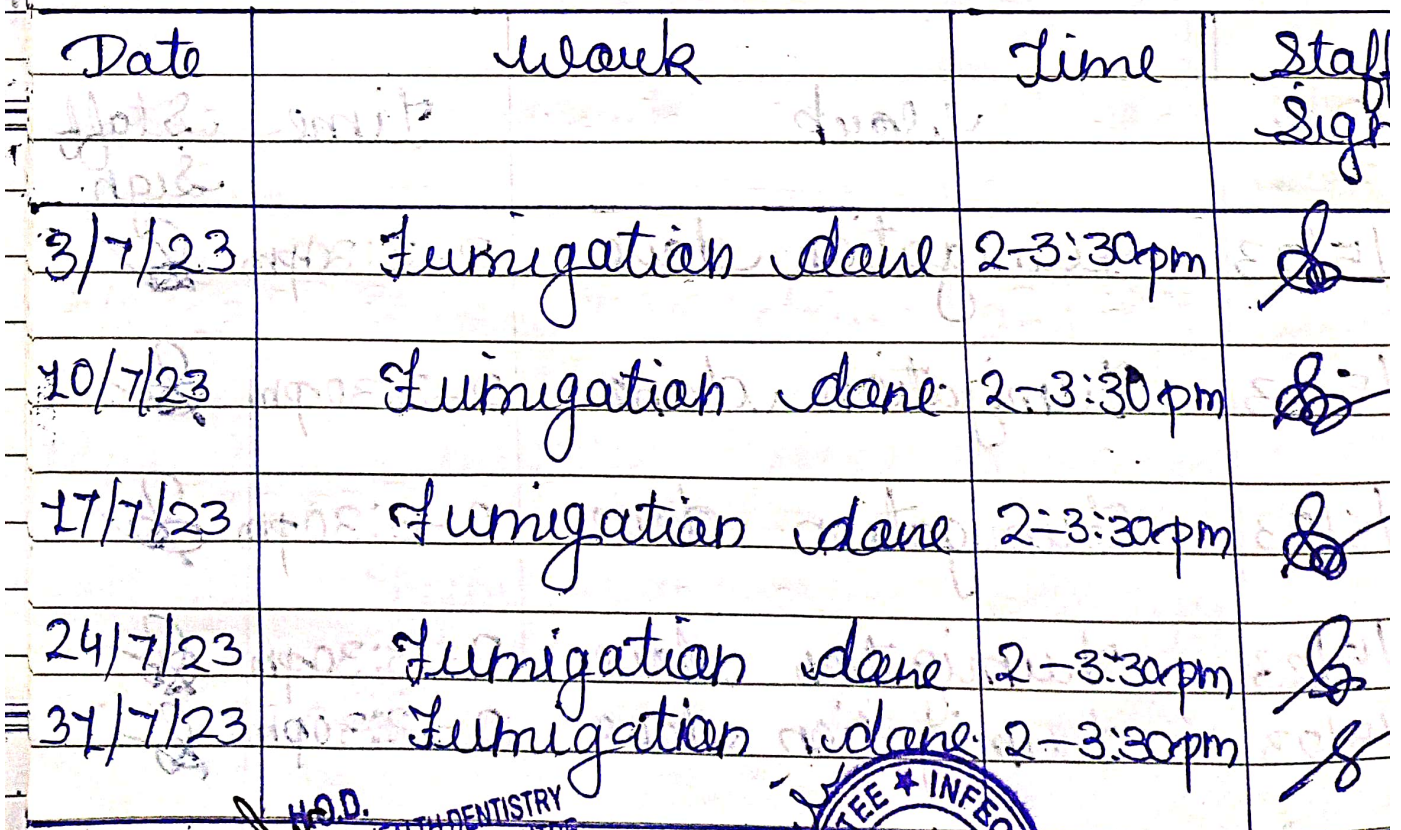 Date Work Time Staff
Sign
3/7/23 Fumigation done 2-3:30pm
10/7/23 Fumigation done 2-3:30pm
17/7/23 Fumigation done 2-3:30pm
24/7/23 Fumigation done 2-3:30pm
31/7/23 Fumigation done 2-3:30pm
H.O.D.
DENTISTRY
TEE ★ INFEC